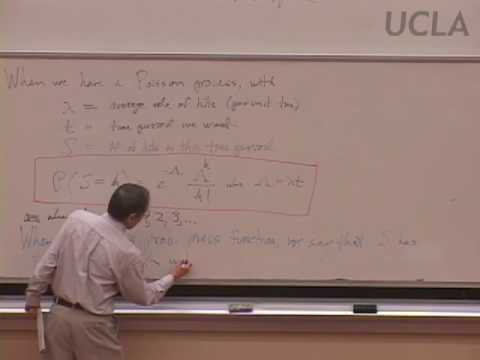 UCLA
When we have a Poisson process, with
λ = average rate of hits (per unit time)
t = time period we want
S = # of hits in this time period
P(S = k) = e^-Λ Λ^k / k! where Λ = λt
2, 3, ...
When prob. mass function, we say that S has